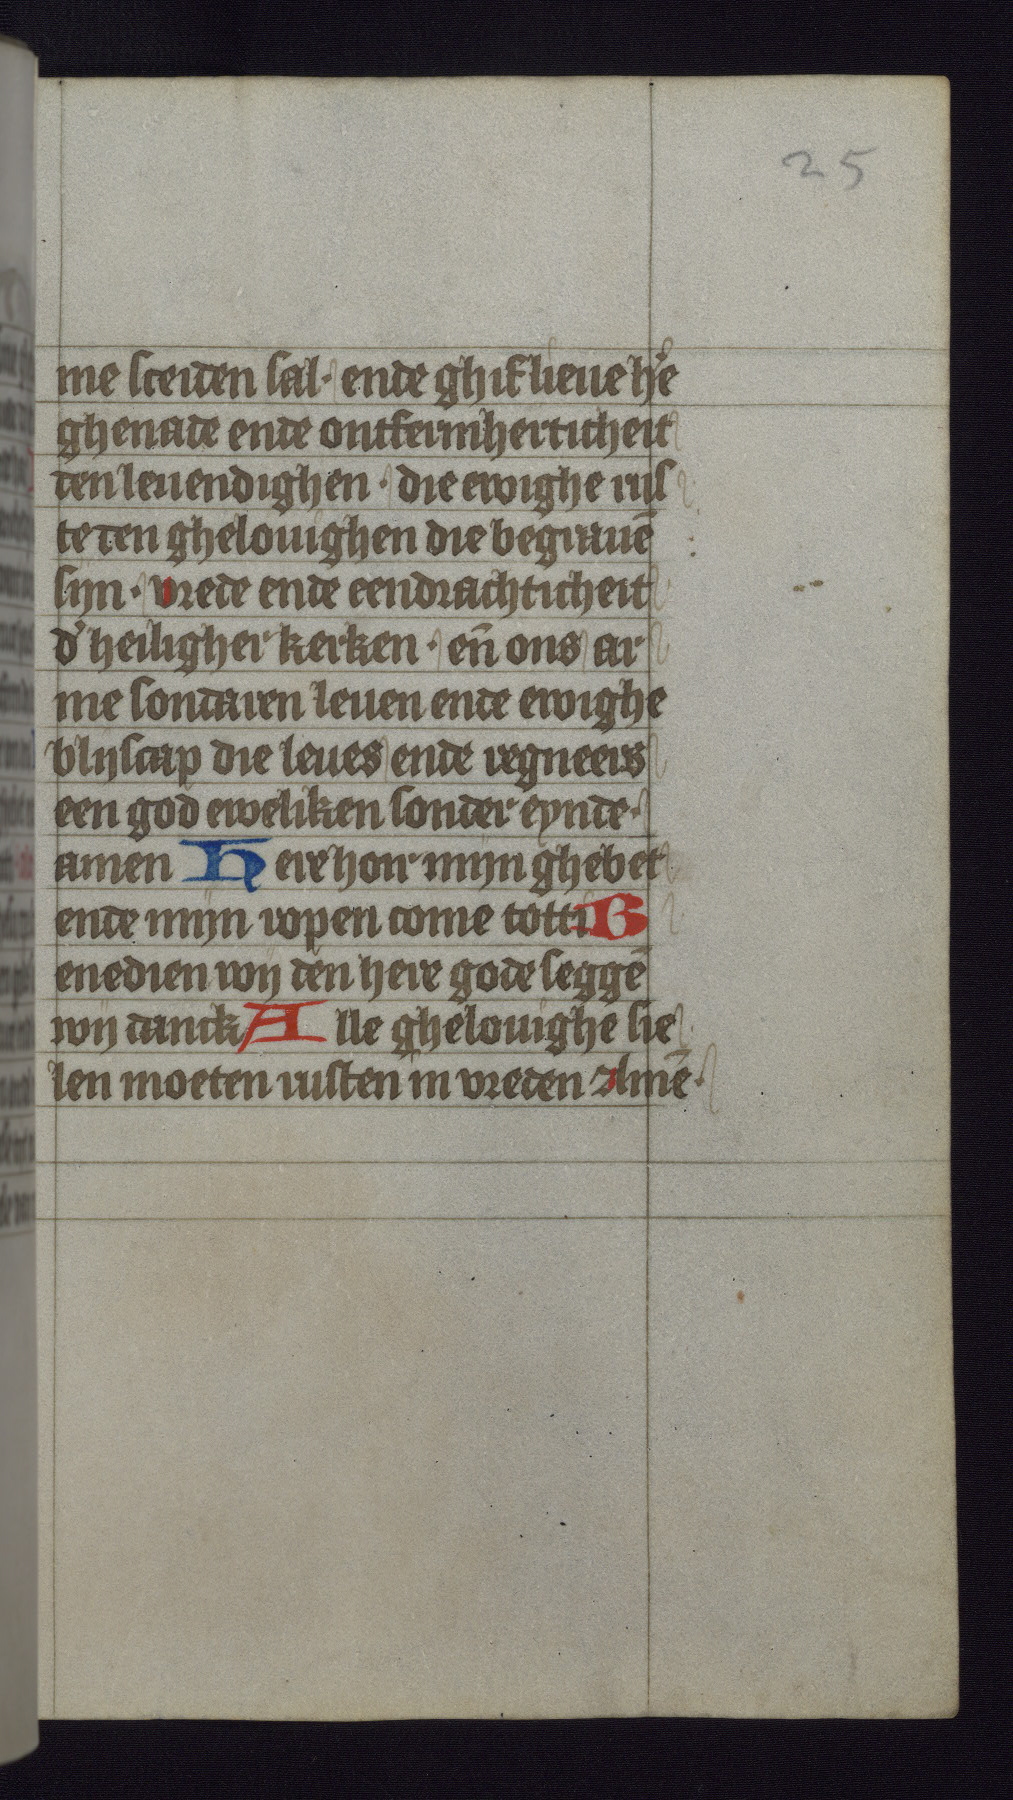 25
me sceiden sal· ende ghif lieue h'e
ghenade ende ontfermherticheit
den leuendighen · die ewighe rus
te den ghelouighen die begrauē
sijn · vrede ende eendrachticheit
d' heiligher kerken · eñ ons ar
me sondaren leuen ende ewighe
blijscap die leues ende regneers
een god eweliken sonder eynde·
amen Here hoir mijn ghebet
ende mijn ropen come totti B
enedien wij den here gode seggē
wij danck Alle ghelouighe sie
len moeten rusten in vreden Amē·